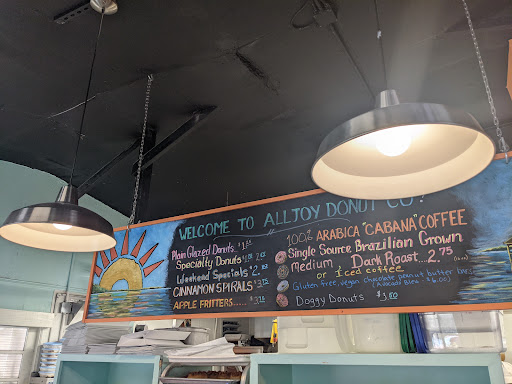 WELCOME TO ALLJOY DONUT CO!
Plain Glazed Donuts..$1
Specialty Donuts $2
Weekend Specials $2
CINNAMON SPIRALS $3.75
APPLE FRITTERS..... $3.75
100% ARABICA "CABANA" COFFEE
Single Source Brazilian Grown
Medium Dark Roast..2.75
or Iced coffee
Gluten free, vegan chocolate peanut butter
Doggy Donuts $3.00